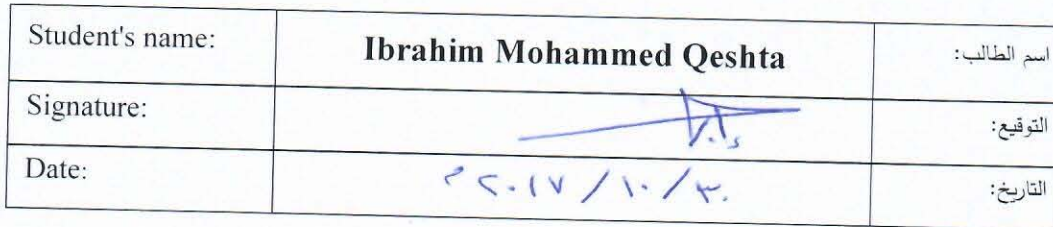 Student's name: Ibrahim Mohammed Qeshta اسم الطالب:
Signature: التوقيع:
Date: ٣٠/١٠/٢٠١٧ م التاريخ: